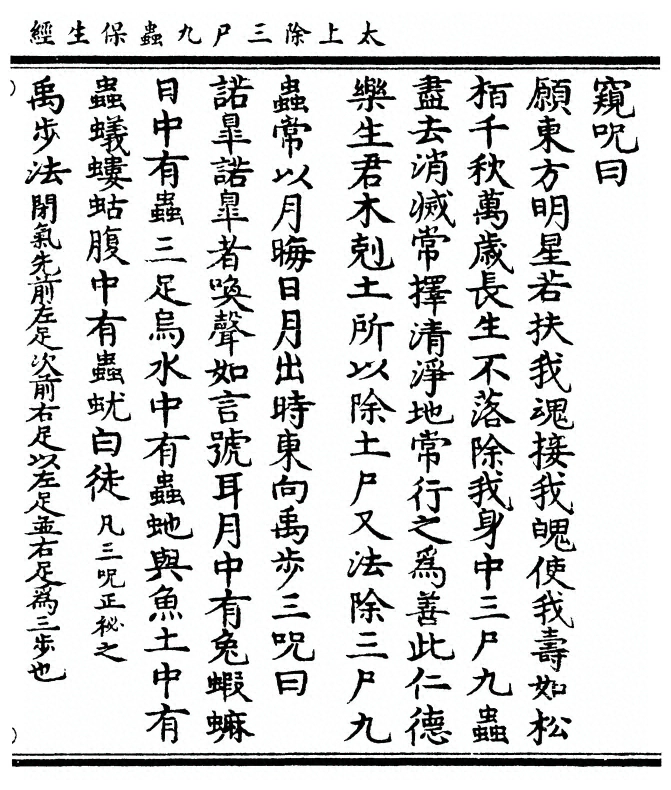 太上除三尸九蟲保生經
窺呪曰
願東方明星若扶我魂接我魄使我壽如松
栢千秋萬歲長生不落除我身中三尸九蟲
盡去消滅常擇清淨地常行之爲善此仁德
樂生君木剋土所以除土尸又法除三尸九
蟲常以月晦日月出時東向禹步三呪曰
諾臯諾臯者喚聲如言號耳月中有兔蝦蟆
日中有蟲三足烏水中有蟲虵與魚土中有
蟲蟻螻蛄腹中有蟲蚘白徒凡三呪正祕之
禹步法閉氣先前左足次前右足以左足並右足爲三步也